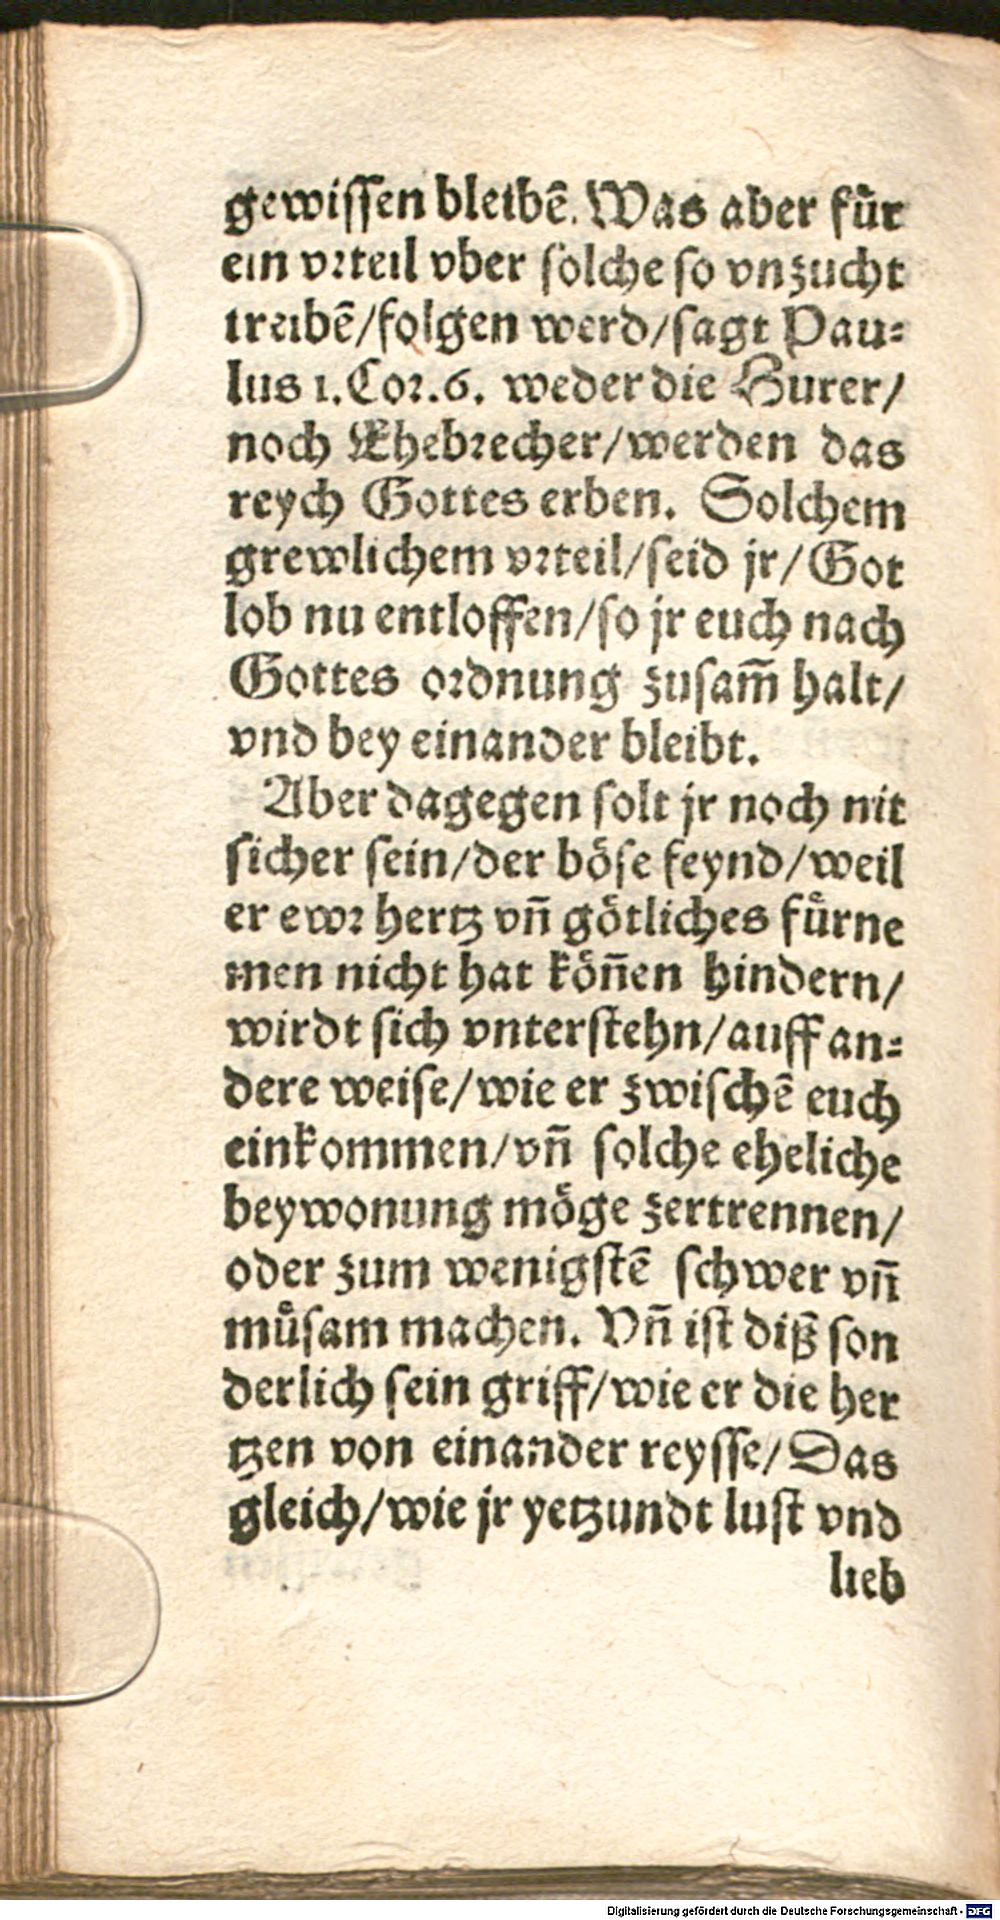 gewiſſen bleibē. Was aber fuͤr
ein vꝛteil vber ſolche ſo vnzucht
treibē/folgen werd/ſagt Pau⸗
lus 1.Coꝛ.6. weder die Hurer/
noch Ehebꝛecher/werden das
reych Gottes erben. Solchem
grewlichem vꝛteil/ſeid jr/Got
lob nu entloffen/ſo jr euch nach
Gottes oꝛdnung zuſam̄ halt/
vnd bey einander bleibt.
Aber dagegen ſolt jr noch nit
ſicher ſein/der boͤſe feynd/weil
er ewꝛ hertz vn̄ goͤtliches fuͤrne
men nicht hat koͤn̄en hindern/
wirdt ſich vnterſtehn/auff an⸗
dere weiſe/wie er zwiſchē euch
einkommen/vn̄ ſolche eheliche
beywonung moͤge zertrennen/
oder zum wenigſtē ſchwer vn̄
muͤſam machen. Vn̄ iſt diß ſon
derlich ſein griff/wie er die her
tzen von einander reyſſe/Das
gleich/wie jr yetzundt luſt vnd
lieb
Digitalisierung gefördert durch die Deutsche Forschungsgemeinschaft - DFG